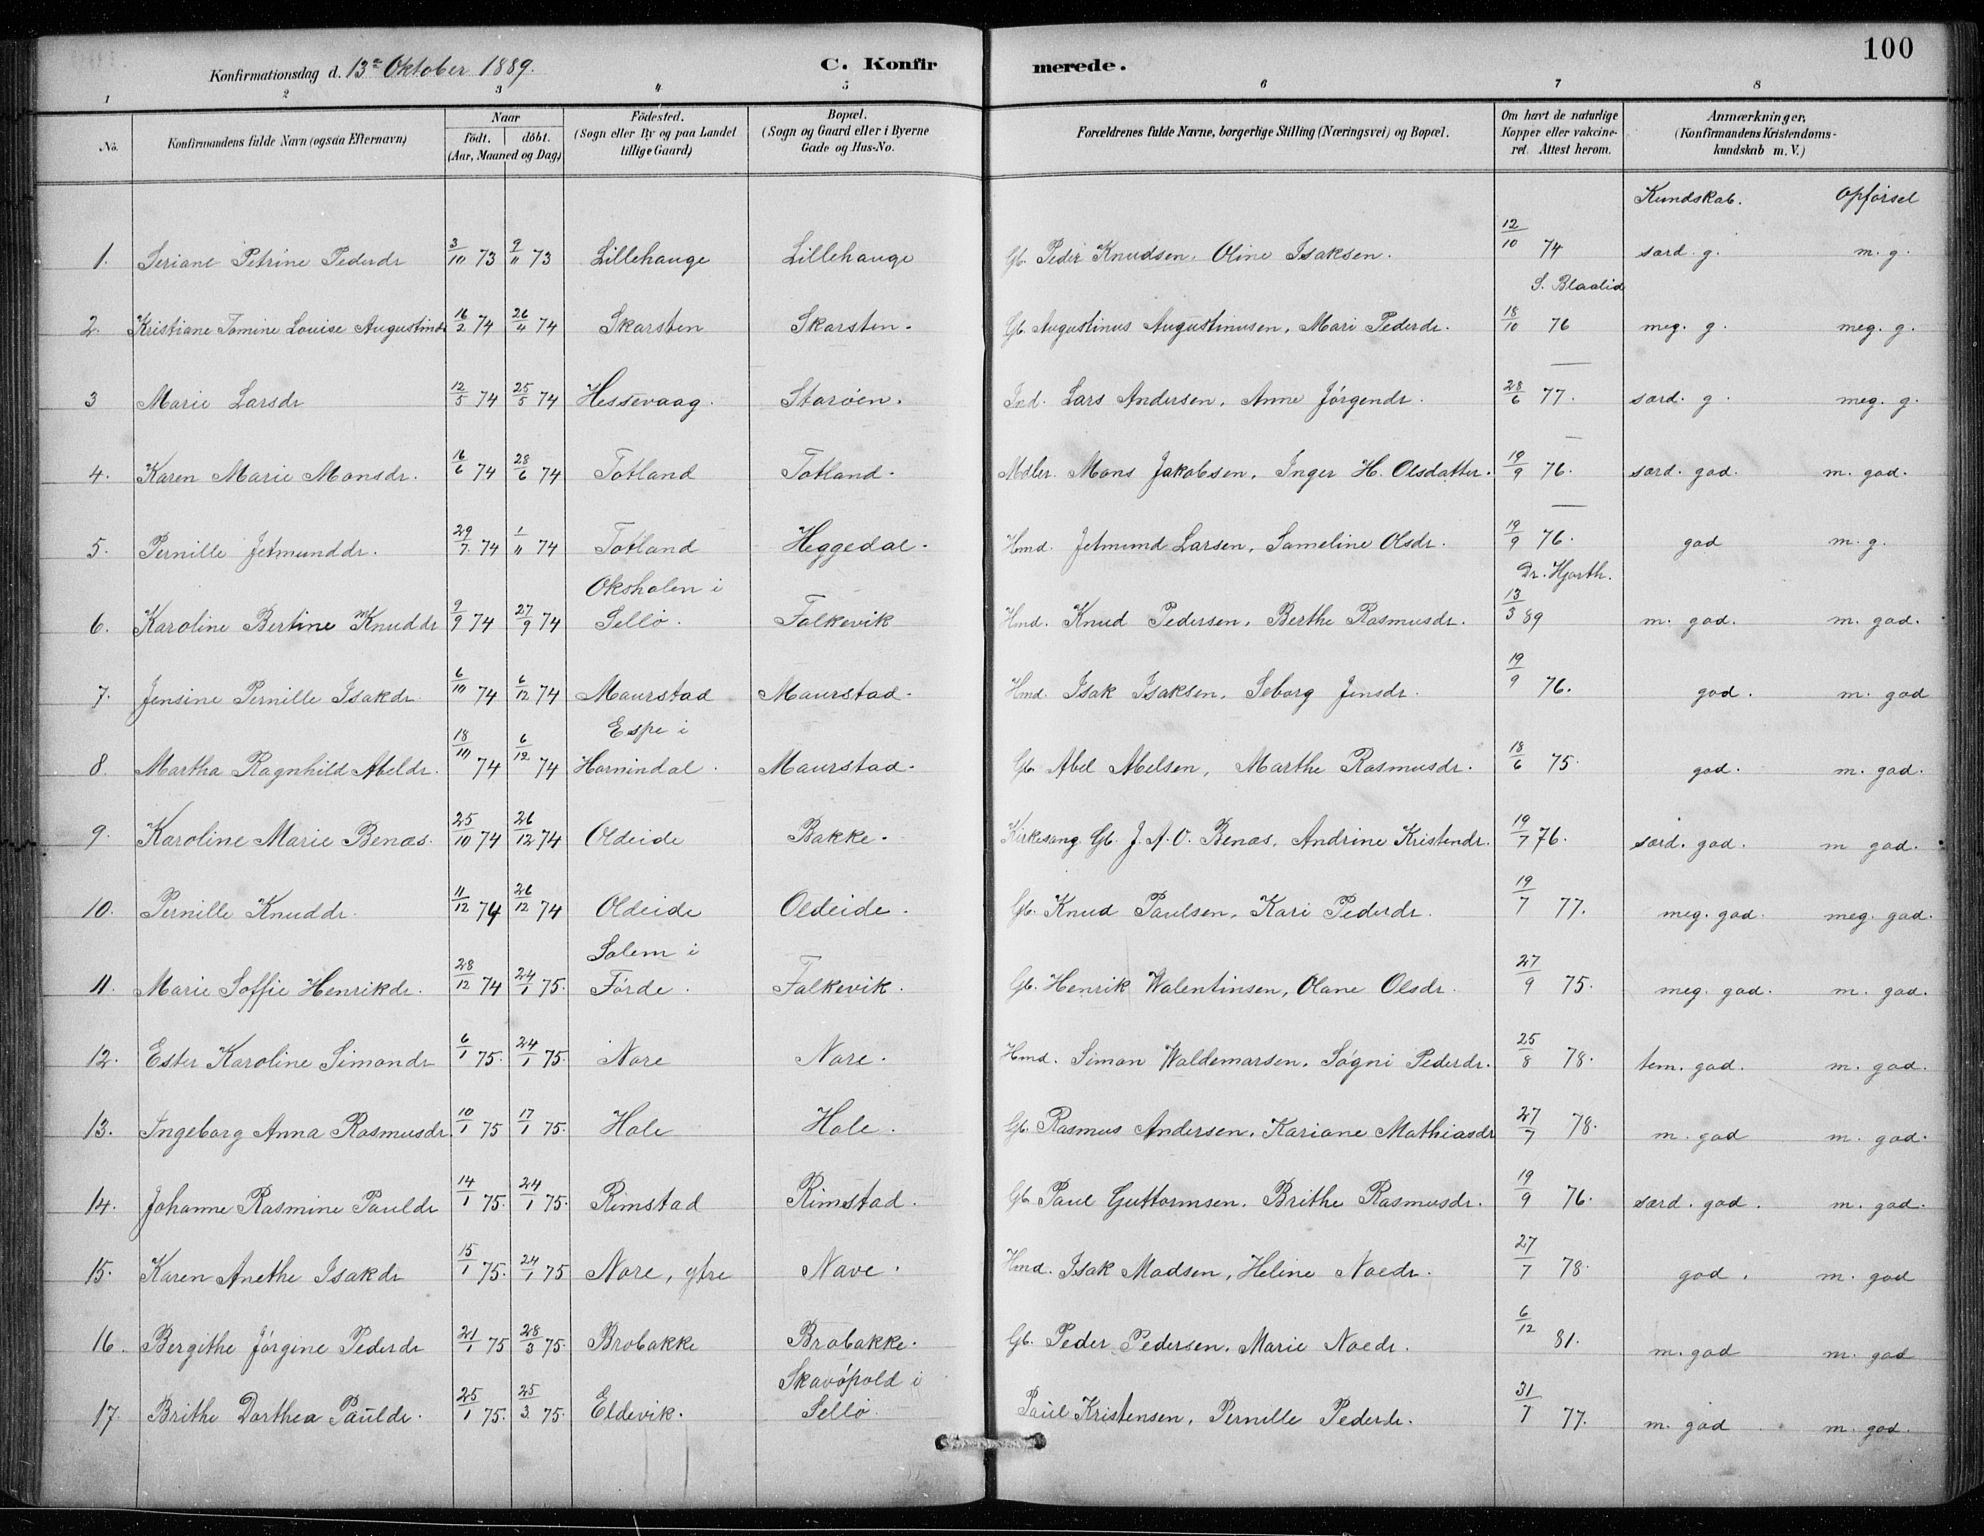 Konfirmationsdag d. 13de Oktober 1889.
C. Konfirmerede.
100
1 2 3 4 5 6 7 8
No. Konfirmandens fulde Navn (ogsaa Efternavn) Naar födt. döbt. (Aar, Maaned og Dag) Födested. (Sogn eller By og paa Landet tillige Gaard) Bopæl. (Sogn og Gaard eller i Byerne Gade og Hus-No. Forældrenes fulde Navne, borgerlige Stilling (Næringsvei) og Bopæl. Om havt de naturlige Kopper eller vakcineret. Attest herom. Anmærkninger, (Konfirmandens Kristendomskundskab m. V.)
Kundskab. Opförsel
1. Seriane Petrine Pederdr 3/10 73 9/11 73 Lillehauge Lillehauge Gb. Peder Knudsen, Oline Isaksen. 12/10 74 særd. g. m. g.
S. Blaalid
2. Kristiane Tomine Louise Augustindr 16/2 74 26/4 74 Skarsten Skarsten. Gb. Augustinus Augustinusen, Mari Pederdr. 18/10 76 meg. g. meg. g.
3 Marie Larsdr 12/5 74 25/5 74 Hessevaag. Staröen. Ind. Lars Andersen, Anne Jörgendr. 28/6 77. særd. g. meg. g.
4. Karen Marie Monsdr. 16/6 74 28/6 74 Totland Totland. Mons Jakobsen, Inger H. Olsdatter. 19/9 76. særd. god. m. god.
5. Pernille Jetmunddr. 29/7. 74 1/11 74 Totland Heggedal. Hmd. Jetmund Larsen, Sameline Olsdr. 19/9 76. god m. g.
Dr. Hjorth.
6. Karoline Bertine Knuddr 9/9 74 27/9 74 Oksholen i Sellö. Falkevik Hmd. Knud Pedersen, Berthe Rasmusdr. 13/3 89 m. god. m. god.
7. Jensine Pernille Isakdr. 6/10 74 6/12 74 Maurstad Maurstad. Hmd. Isak Isaksen, Seborg Jensdr. 19/9 76. god. m. god
8. Martha Ragnhild Abeldr. 18/10 74 6/12 74 Espe i Hornindal. Maurstad. Gb. Abel Abelsen, Marthe Rasmusdr. 18/6 75. god. m. god.
9. Karoline Marie Benæs. 25/10 74 26/12 74 Oldeide Bakke. Kirkesang. Gb. J. A. O. Benæs, Andrine Kristendr. 19/7 76. særd. god. m god.
10. Pernille Knuddr. 11/12 74 26/12 74 Oldeide Oldeide. Gb. Knud Paulsen, Kari Pederdr. 19/7 77. meg. god. meg. god.
11. Marie Soffie Henrikdr. 28/12 74 24/1 75. Solem i Förde. Falkevik. Gb. Henrik Walentinsen, Olane Olsdr. 27/9 75. meg. god. m. god.
12. Ester Karoline Simondr 6/1 75. 24/1 75. Nore Nore. Hmd. Simon Waldemarsen, Søgni Pederdr. 25/8 78. tem. god. m. god.
13. Ingeborg Anna Rasmusdr. 10/1 75 17/1 75. Hole Hole. Gb. Rasmus Andersen, Kariane Mathiasdr 27/7 78. m. god m. god.
14. Johanne Rasmine Pauldr 14/1 75. 24/1 75. Rimstad Rimstad. Gb. Paul Guttormsen, Brithe Rasmusdr. 19/9 76. særd. god. m. god.
15. Karen Anethe Isakdr 15/1 75. 24/1 75 Nore, ytre Nave. Hmd. Isak Madsen, Heline Noedr. 27/7 78. god. m. god
16. Bergithe Jörgine Pederdr 21/1 75 28/3 75. Brobakke Brobakke. Gb. Peder Pedersen, Marie Noedr. 6/12 81. m. god m. god
17. Brithe Dorthea Pauldr. 25/1 75. 25/3. 75. Eldevik. Skavöpold i Sellö. Paul Kristensen, Pernille Pederdr. 31/7 77. m. god m. god.